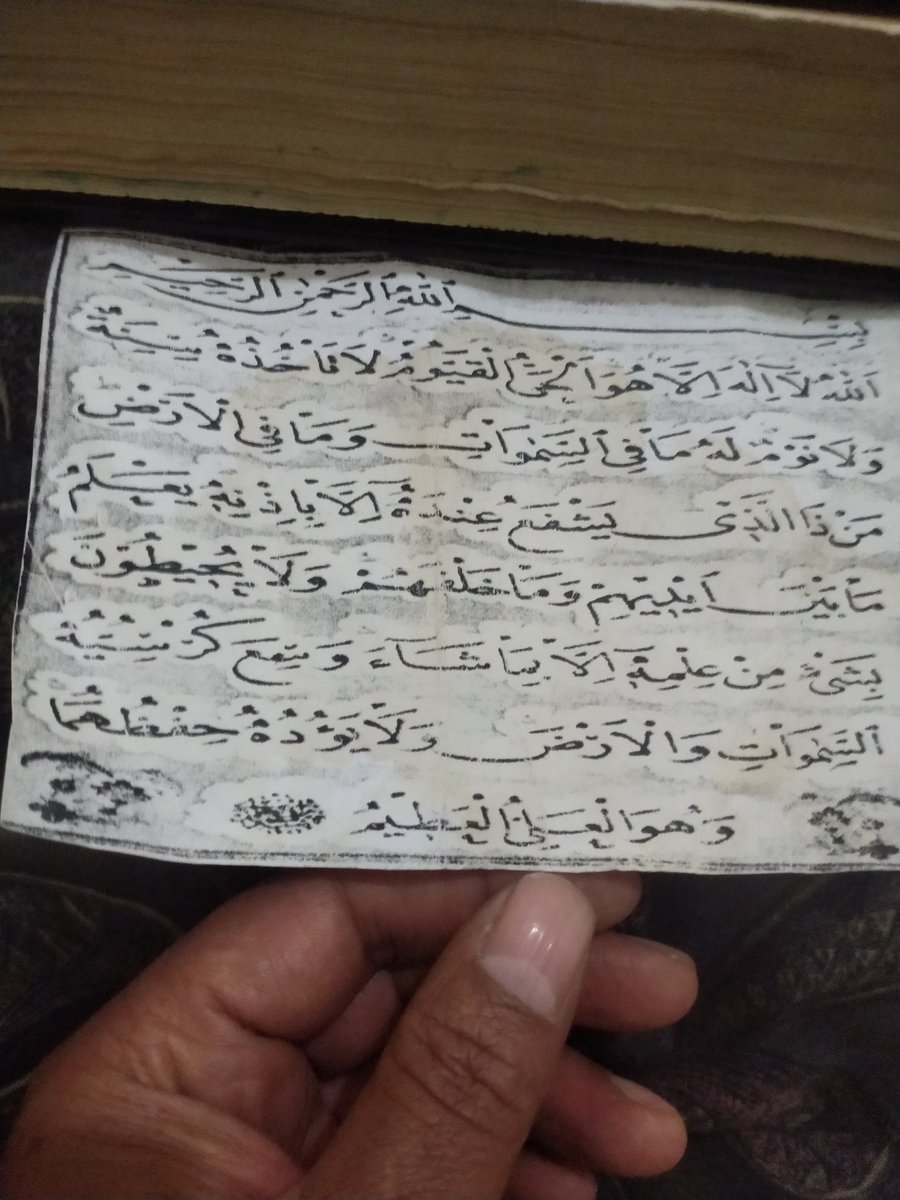 بِسْمِ اللّٰهِ الرَّحْمٰنِ الرَّحِيْمِ
اَللّٰهُ لَآ اِلٰهَ اِلَّا هُوَ اَلْحَيُّ الْقَيُّوْمُ لَا تَأْخُذُهٗ سِنَةٌ
وَلَا نَوْمٌ لَهٗ مَا فِي السَّمٰوَاتِ وَمَا فِي الْاَرْضِ
مَنْ ذَا الَّذِيْ يَشْفَعُ عِنْدَهٗ اِلَّا بِاِذْنِهٖ يَعْلَمُ
مَا بَيْنَ اَيْدِيْهِمْ وَمَا خَلْفَهُمْ وَلَا يُحِيْطُوْنَ
بِشَيْءٍ مِنْ عِلْمِهٖ اِلَّا بِمَا شَاءَ وَسِعَ كُرْسِيُّهُ
السَّمٰوَاتِ وَالْاَرْضَ وَلَا يَؤُدُهٗ حِفْظُهُمَا
وَهُوَ الْعَلِيُّ الْعَظِيْمُ